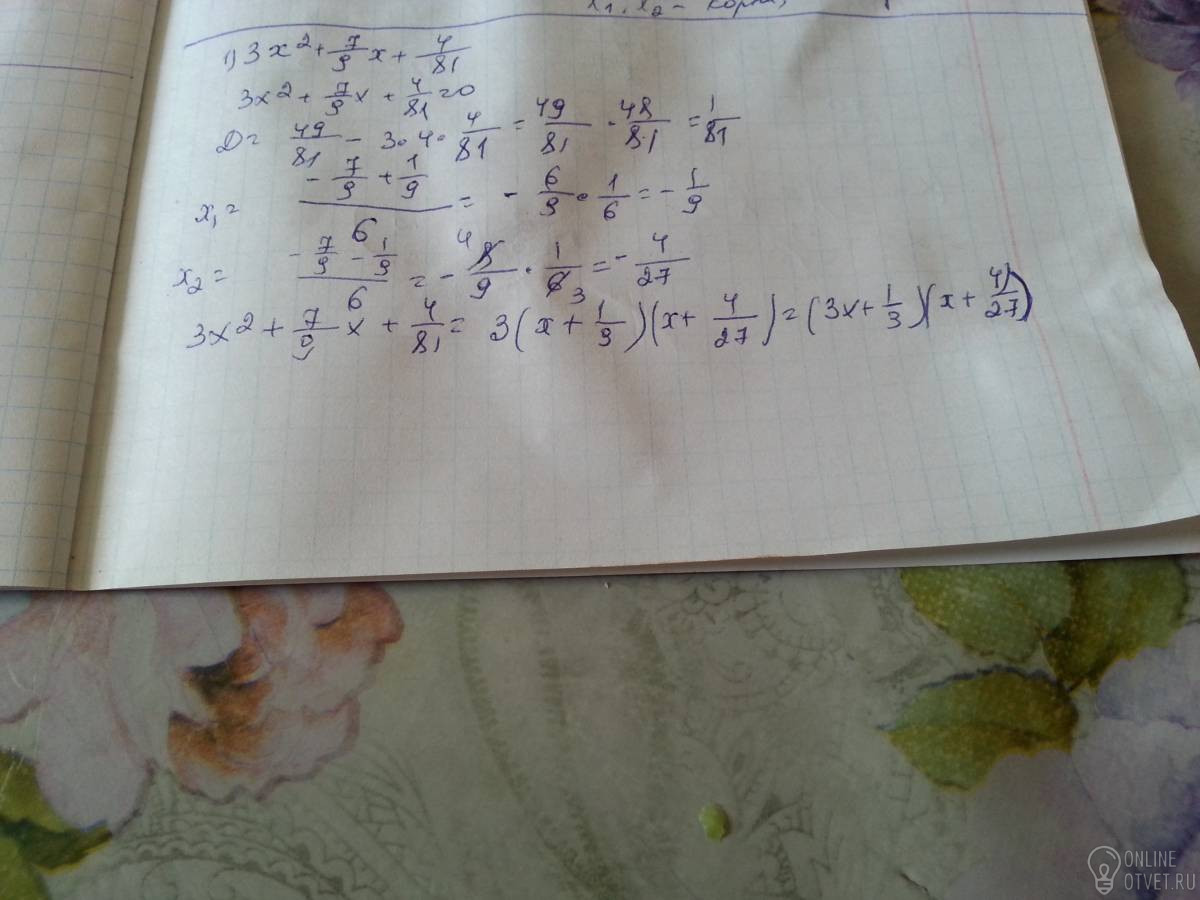 x₁, x₂ - корни,
1) 3x² + 7/9 x + 4/81
3x² + 7/9 x + 4/81 = 0
D = 49/81 - 3·4·4/81 = 49/81 - 48/81 = 1/81
x₁ = (-7/9 + 1/9)/6 = -6/9 · 1/6 = -1/9
x₂ = (-7/9 - 1/9)/6 = -8/9 · 1/6 = -4/27
3x² + 7/9 x + 4/81 = 3(x + 1/9)(x + 4/27) = (3x + 1/3)(x + 4/27)
ONLINE
OTVET.RU